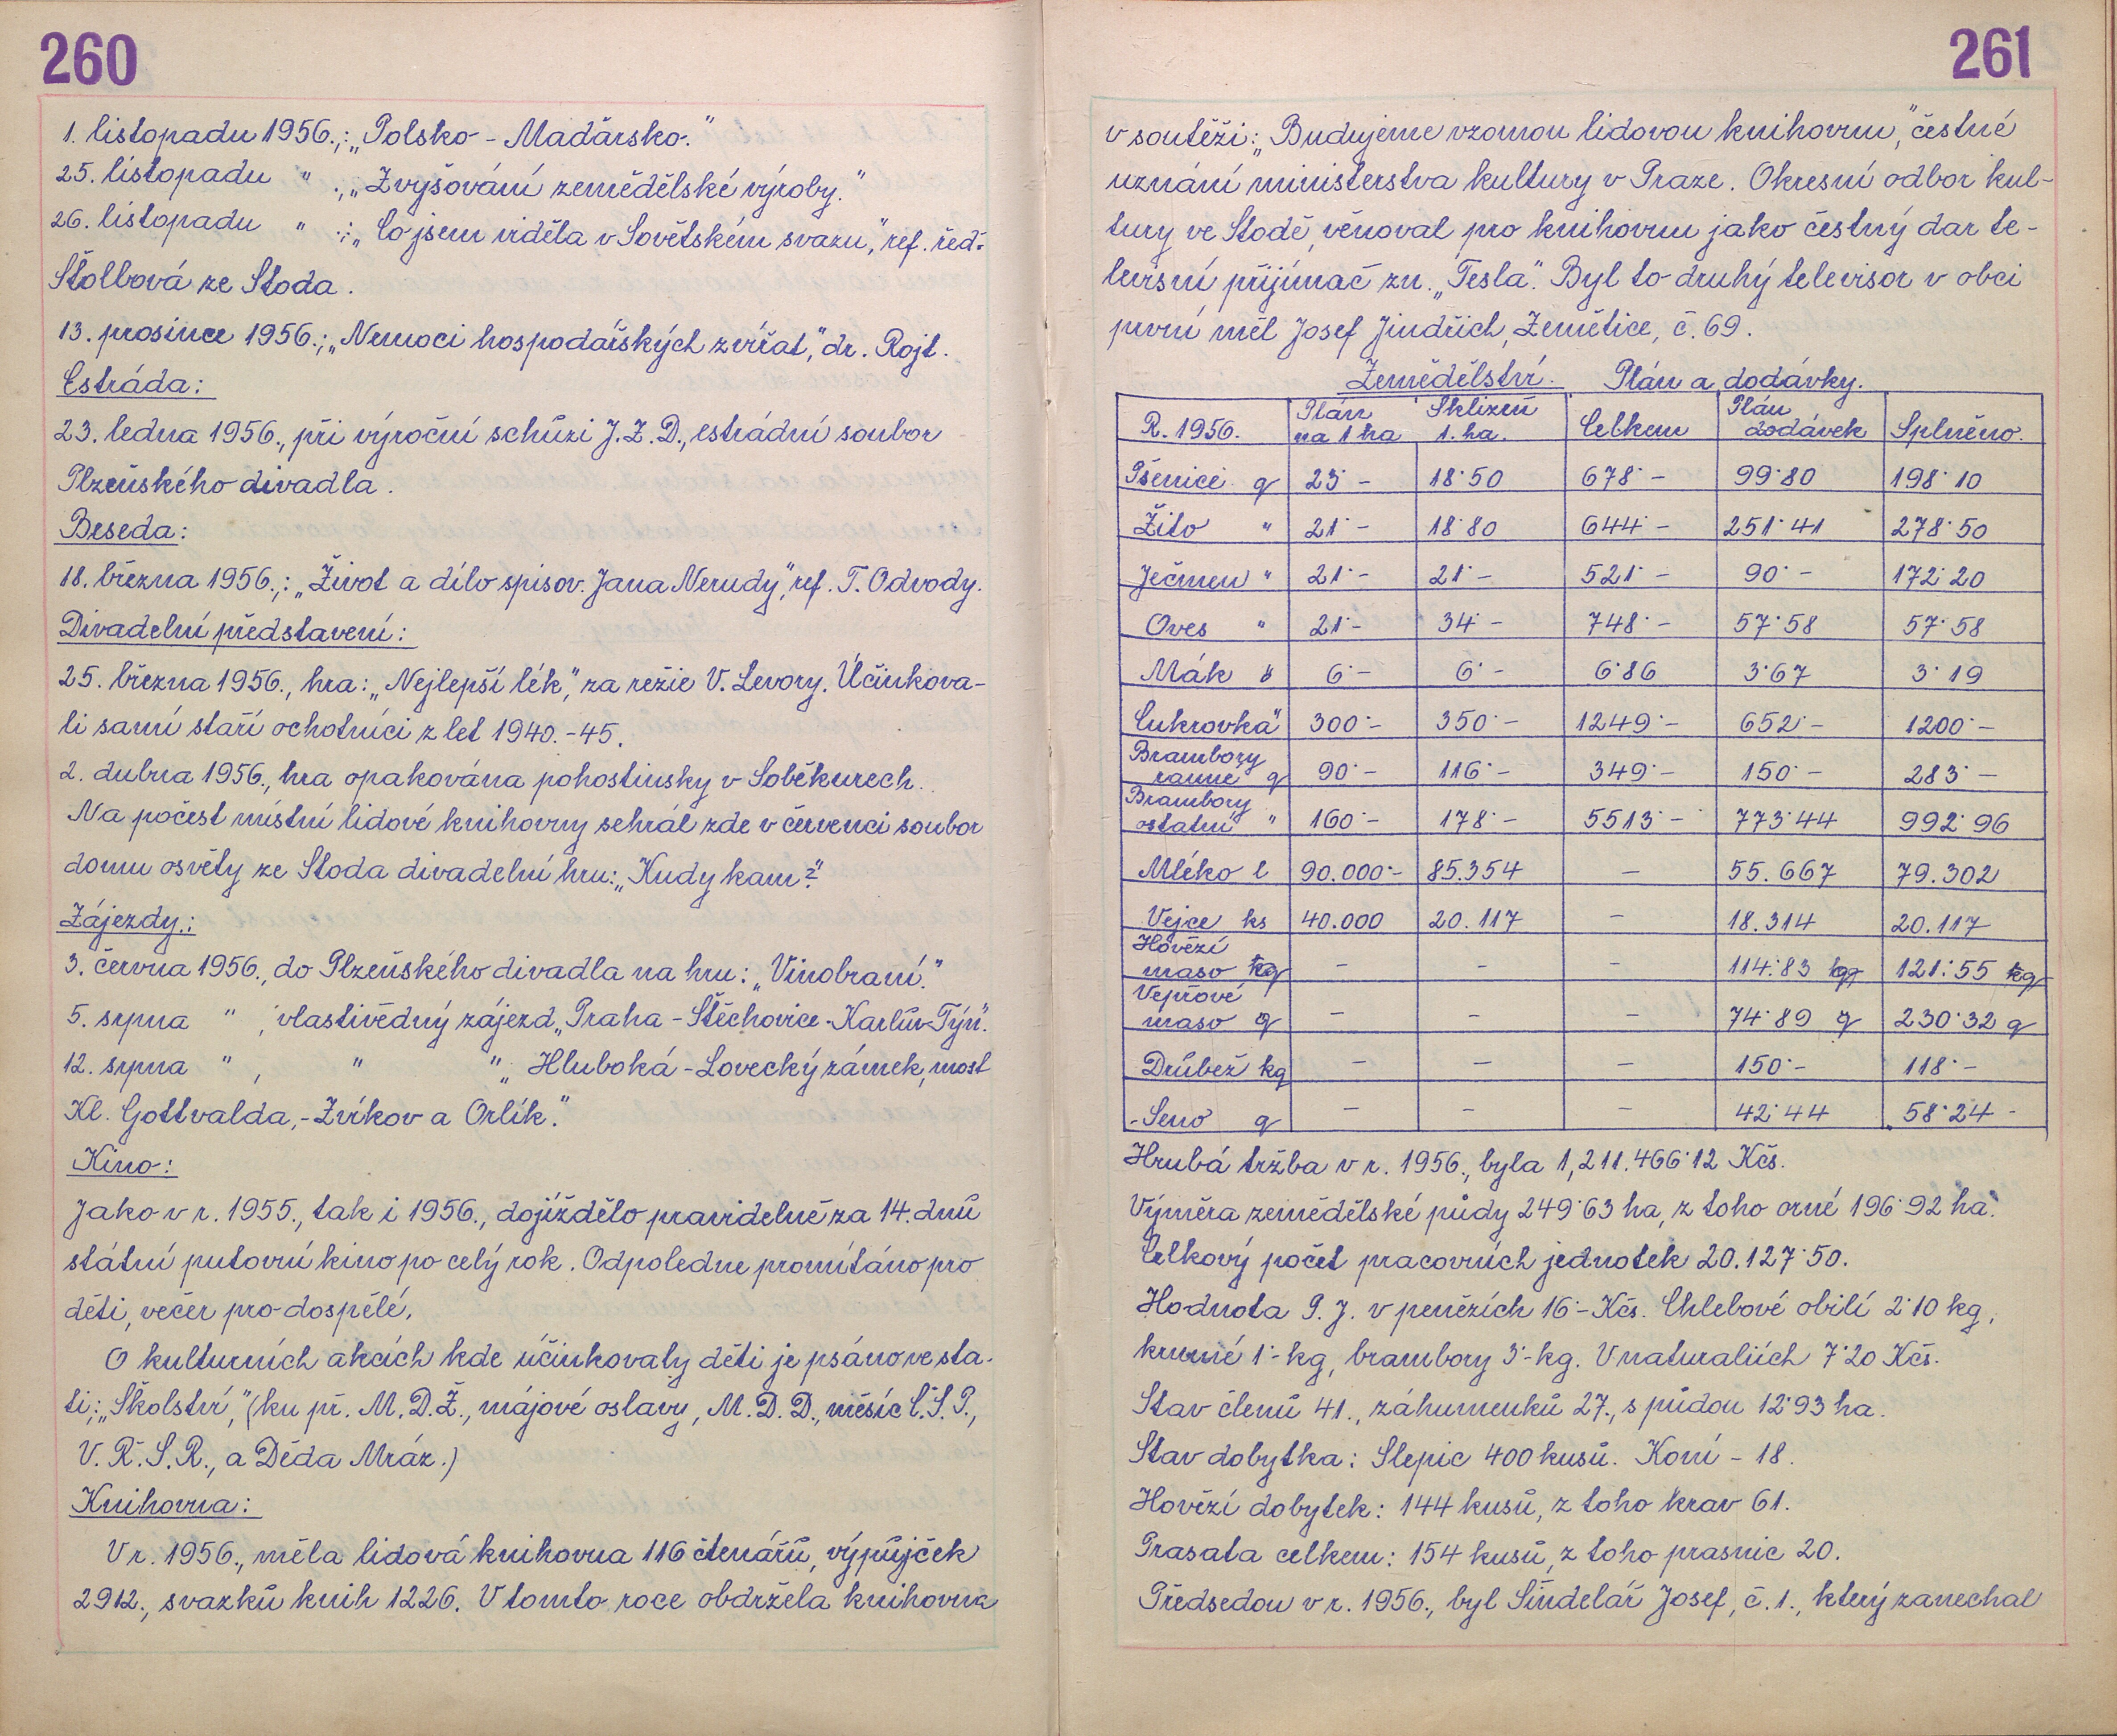 260
1. listopadu 1956.,: „Polsko - Maďarsko."
25. listopadu " ., „Zvyšování zemědělské výroby."
26. listopadu " .: „Co jsem viděla v Sovětském svazu," ref. řed.
Štolbová ze Stoda.
13. prosince 1956.; „Nemoci hospodářských zvířat," dr. Rojt.
Estráda:
23. ledna 1956., při výroční schůzi J.Z.D., estrádní soubor
Plzeňského divadla.
Beseda:
18. března 1956.,: „Život a dílo spisov. Jana Nerudy," ref. T. Odvody.
Divadelní představení:
25. března 1956., hra: „Nejlepší lék," za režie V. Levory. Účinkova-
li samí staří ochotníci z let 1940.-45.
2. dubna 1956., hra opakována pohostinsky v Soběkurech.
Na počest místní lidové knihovny sehrál zde v červenci soubor
domu osvěty ze Stoda divadelní hru: „Kudy kam?"
Zájezdy.:
3. června 1956., do Plzeňského divadla na hru: „Vinobraní."
5. srpna " , vlastivědný zájezd „Praha - Štěchovice - Karlův-Týn".
12. srpna " , " " „ Hluboká - Lovecký zámek, most
Kl. Gottvalda, - Zvíkov a Orlík."
Kino:
Jako v r. 1955., tak i 1956., dojíždělo pravidelně za 14. dnů
státní putovní kino po celý rok. Odpoledne promítáno pro
děti, večer pro dospělé.
O kulturních akcích kde účinkovaly děti je psáno ve sta-
ti; „Školství," (ku př. M.D.Ž., májové oslavy, M.D.D., měsíc Č.S.P.,
V.Ř.S.R., a Děda Mráz.)
Knihovna:
V r. 1956., měla lidová knihovna 116 čtenářů, výpůjček
2912., svazků knih 1226. V tomto roce obdržela knihovna
261
v soutěži: „Budujeme vzornou lidovou knihovnu," čestné
uznání ministerstva kultury v Praze. Okresní odbor kul-
tury ve Stodě, věnoval pro knihovnu jako čestný dar te-
levisní přijímač zn. „Tesla". Byl to druhý televisor v obci
první měl Josef Jindřich, Zemětice, č. 69.
Zemědělství. Plán a dodávky.
R. 1956. Plán na 1 ha Sklizeň 1. ha. Celkem Plán dodávek Splněno.
Pšenice q 23·- 18·50 678·- 99·80 198·10
Žito " 21·- 18·80 644·- 251·41 278·50
Ječmen " 21·- 21·- 521·- 90·- 172·20
Oves " 21·- 34·- 748·- 57·58 57·58
Mák " 6·- 6·- 6·86 3·67 3·19
Cukrovka " 300·- 350·- 1249·- 652·- 1200·-
Brambory ranné q 90·- 116·- 349·- 150·- 283·-
Brambory ostatní " 160·- 178·- 5513·- 773·44 992·96
Mléko l 90.000·- 85.354 - 55.667 79.302
Vejce ks 40.000 20.117 - 18.314 20.117
Hovězí maso kg - - - 114·83 q 121·55 q
Vepřové maso q - - - 74·89 q 230·32 q
Drůbež kg - - - 150·- 118·-
Seno q - - - 42·44 58·24 -
Hrubá tržba v r. 1956., byla 1,211.466·12 Kčs.
Výměra zemědělské půdy 249·63 ha, z toho orné 196·92 ha.
Celkový počet pracovních jednotek 20.127·50.
Hodnota P. J. v penězích 16·- Kčs. Chlebové obilí 2·10 kg,
krmné 1·- kg, brambory 3·- kg. V naturaliích 7·20 Kčs.
Stav členů 41., záhumenků 27., s půdou 12·93 ha.
Stav dobytka: Slepic 400 kusů. Koní - 18.
Hovězí dobytek: 144 kusů, z toho krav 61.
Prasata celkem: 154 kusů, z toho prasnic 20.
Předsedou v r. 1956., byl Šindelář Josef, č. 1., který zanechal